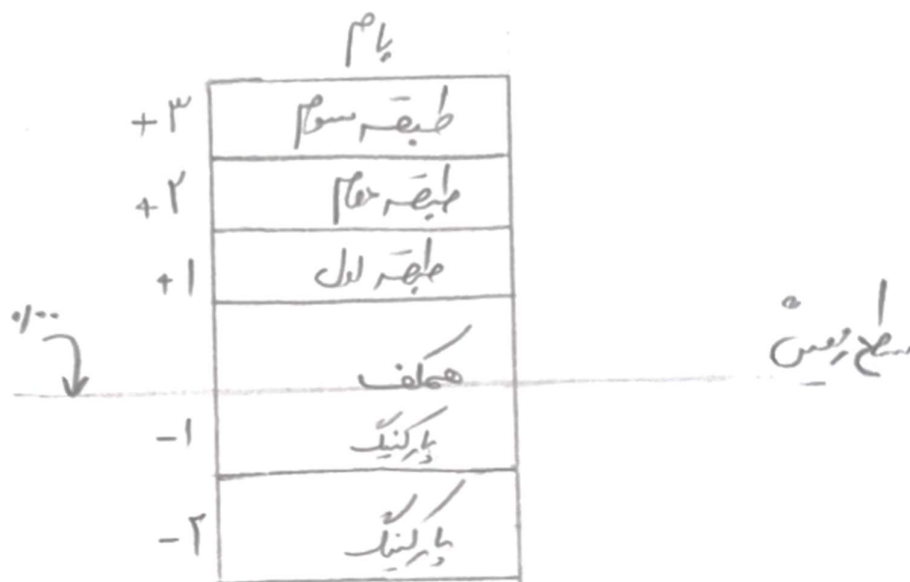 بام
+۳ طبقه سوم
+۲ طبقه دوم
+۱ طبقه اول
۰/۰۰
همکف
سطح زمین
-۱ پارکینگ
-۲ پارکینگ